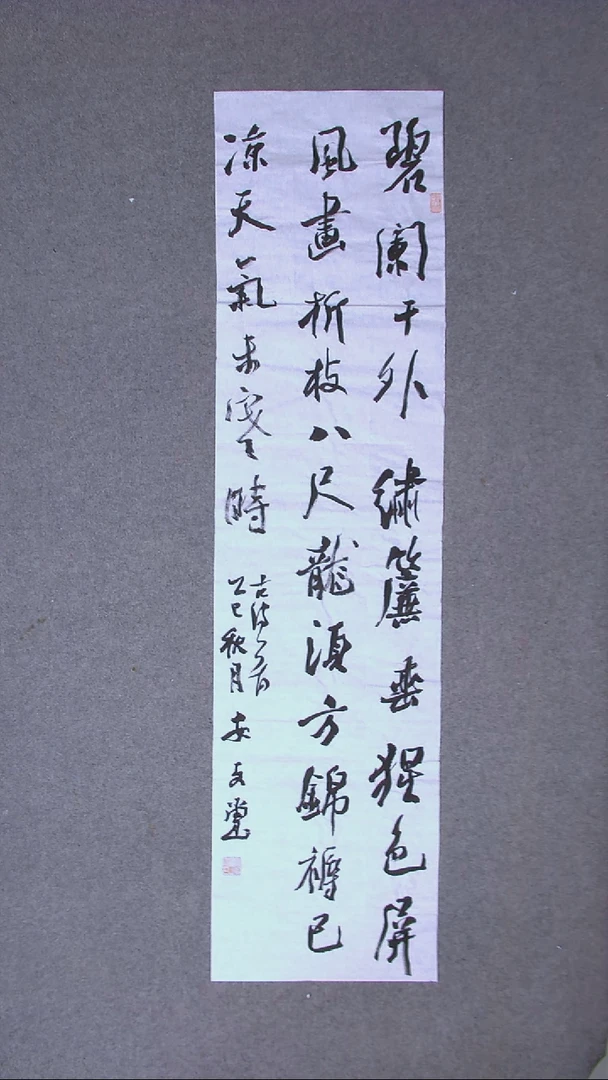 碧闌干外繡簾垂猩色屏
風畫折枝八尺龍湏方錦褥已
涼天氣未寒時
古詩一首
乙巳秋月安文